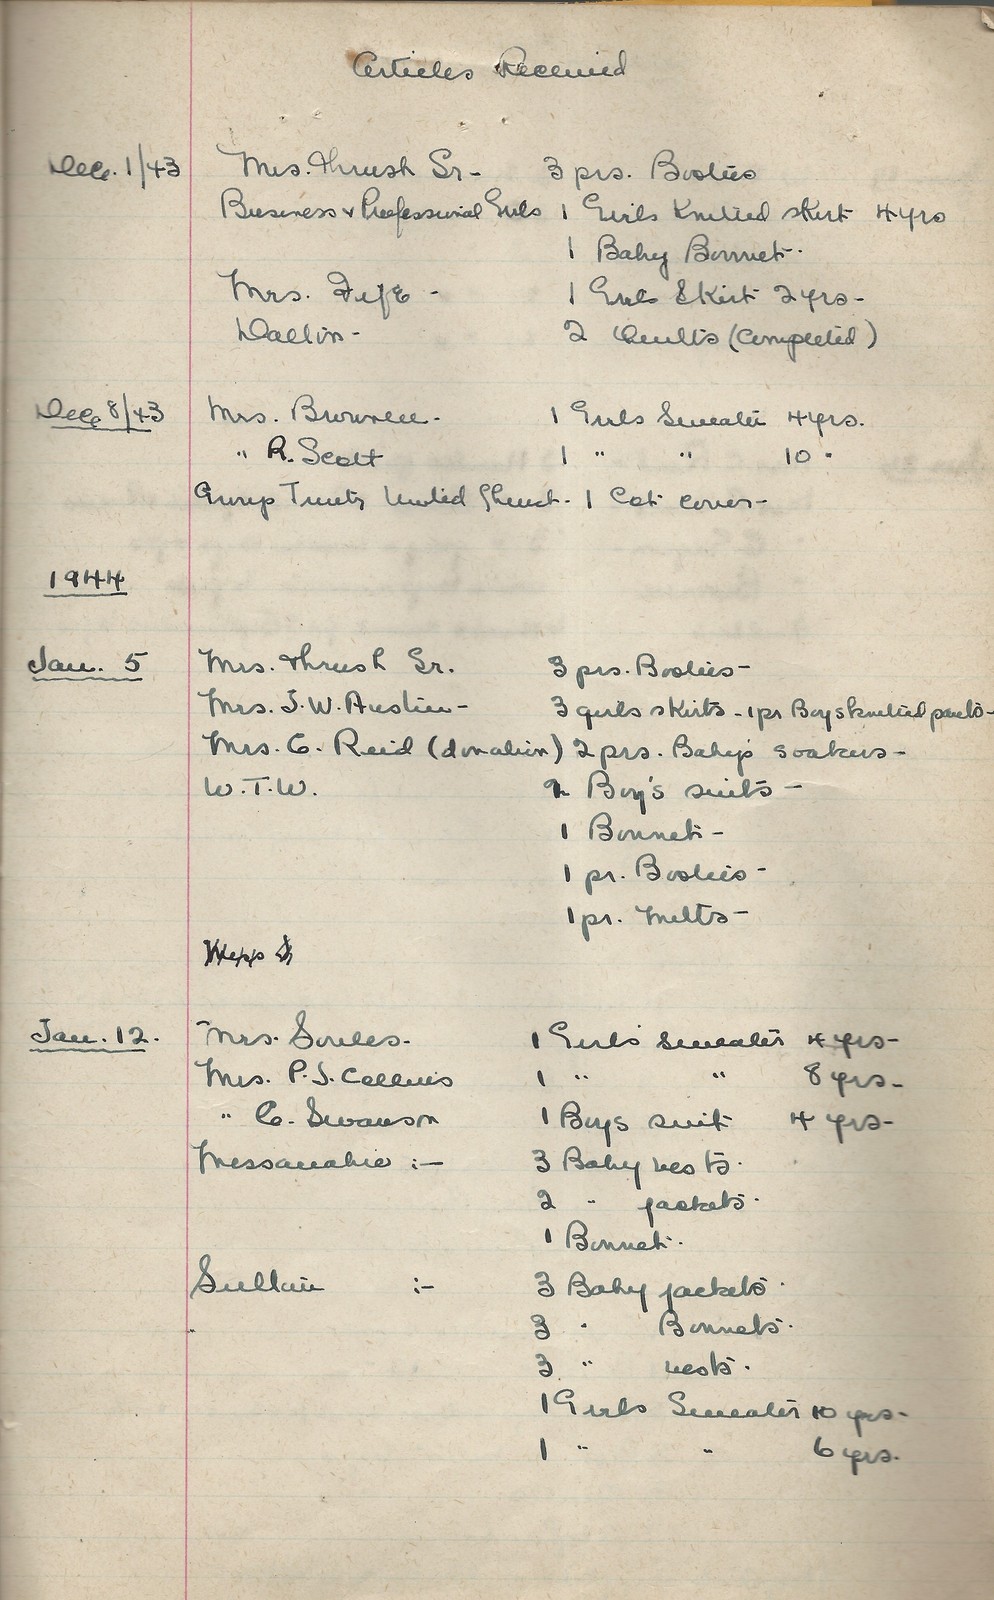 Articles Received
Dec. 1/43 Mrs. Thrush Sr- 3 prs. Booties
Business & Professional Girls 1 Girls Knitted skirt 4 yrs
1 Baby Bonnet.
Mrs. Fyfe - 1 Girls Skirt 2 yrs-
Dalton- 2 Quilts (completed)
Dec 8/43 Mrs. Brownlee- 1 Girls Sweater 4 yrs.
" R. Scott 1 " " 10 "
Group Trinity United Church- 1 Cot cover-
1944
Jan. 5 Mrs. Thrush Sr. 3 prs. Booties-
Mrs. J. W. Austin- 3 girls skirts - 1 pr Boys knitted pants-
Mrs. C. Reid (donation) 2 prs. Baby's soakers-
W.T.W. 2 Boy's suits-
1 Bonnet-
1 pr. Booties-
1 pr. Mitts-
Jan. 12. Mrs. Soules. 1 Girls Sweater 4 yrs-
Mrs. P. J. Collins 1 " " 8 yrs-
" C. Swanson 1 Boys suit 4 yrs-
Missanabie :- 3 Baby vests.
2 " jackets.
1 Bonnet.
Sultan :- 3 Baby jackets.
3 " Bonnets.
3 " vests.
1 Girls Sweater 10 yrs-
1 " " 6 yrs.